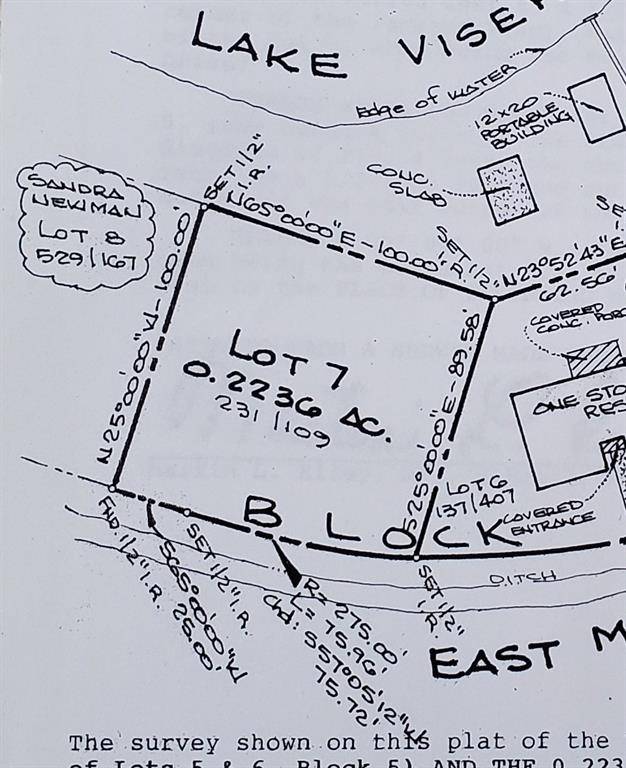 LAKE VISE
Edge of WATER
12'x20'
PORTABLE
BUILDING
CONC.
SLAB
SET 1/2"
I.R.
SANDRA
NEWMAN
LOT 8
529/167
N65°00'00"E-100.00'
SET 1/2"
I.R.
SE
N23°52'43"E
62.56'
COVERED
CONC. PORC
N25°00'00"W-100.00'
LOT 7
0.2236 AC.
231/109
S25°00'00"E-89.58'
ONE STO
RES
LOT 6
137/407
COVERED
ENTRANCE
BLOCK
FND 1/2" I.R.
S65°00'00"W
25.00'
SET 1/2" I.R.
R= 275.00'
L= 75.96'
Chd: S57°05'12"W
75.72'
SET 1/2"
I.R.
DITCH
EAST M
The survey shown on this plat of the
of Lots 5 & 6, Block 5) AND THE 0.223